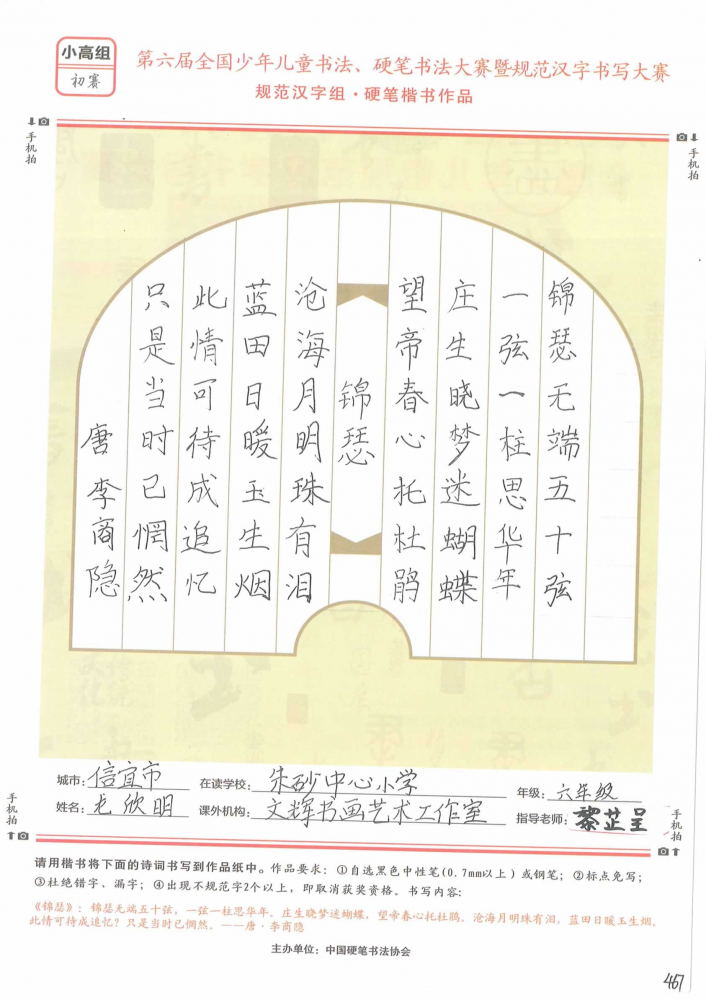 小高组
初赛
第六届全国少年儿童书法、硬笔书法大赛暨规范汉字书写大赛
规范汉字组·硬笔楷书作品
手机拍
手机拍
锦瑟无端五十弦
一弦一柱思华年
庄生晓梦迷蝴蝶
望帝春心托杜鹃
锦瑟
沧海月明珠有泪
蓝田日暖玉生烟
此情可待成追忆
只是当时已惘然
唐李商隐
城市：信宜市
在读学校：朱砂中心小学
年级：六年级
姓名：尤欣明
课外机构：文辉书画艺术工作室
指导老师：黎芷呈
手机拍
手机拍
请用楷书将下面的诗词书写到作品纸中。作品要求：①自选黑色中性笔(0.7mm以上)或钢笔；②标点免写；
③杜绝错字、漏字；④出现不规范字2个以上，即取消获奖资格。书写内容：
《锦瑟》：锦瑟无端五十弦，一弦一柱思华年。庄生晓梦迷蝴蝶，望帝春心托杜鹃。沧海月明珠有泪，蓝田日暖玉生烟。
此情可待成追忆？只是当时已惘然。——唐·李商隐
主办单位：中国硬笔书法协会
467